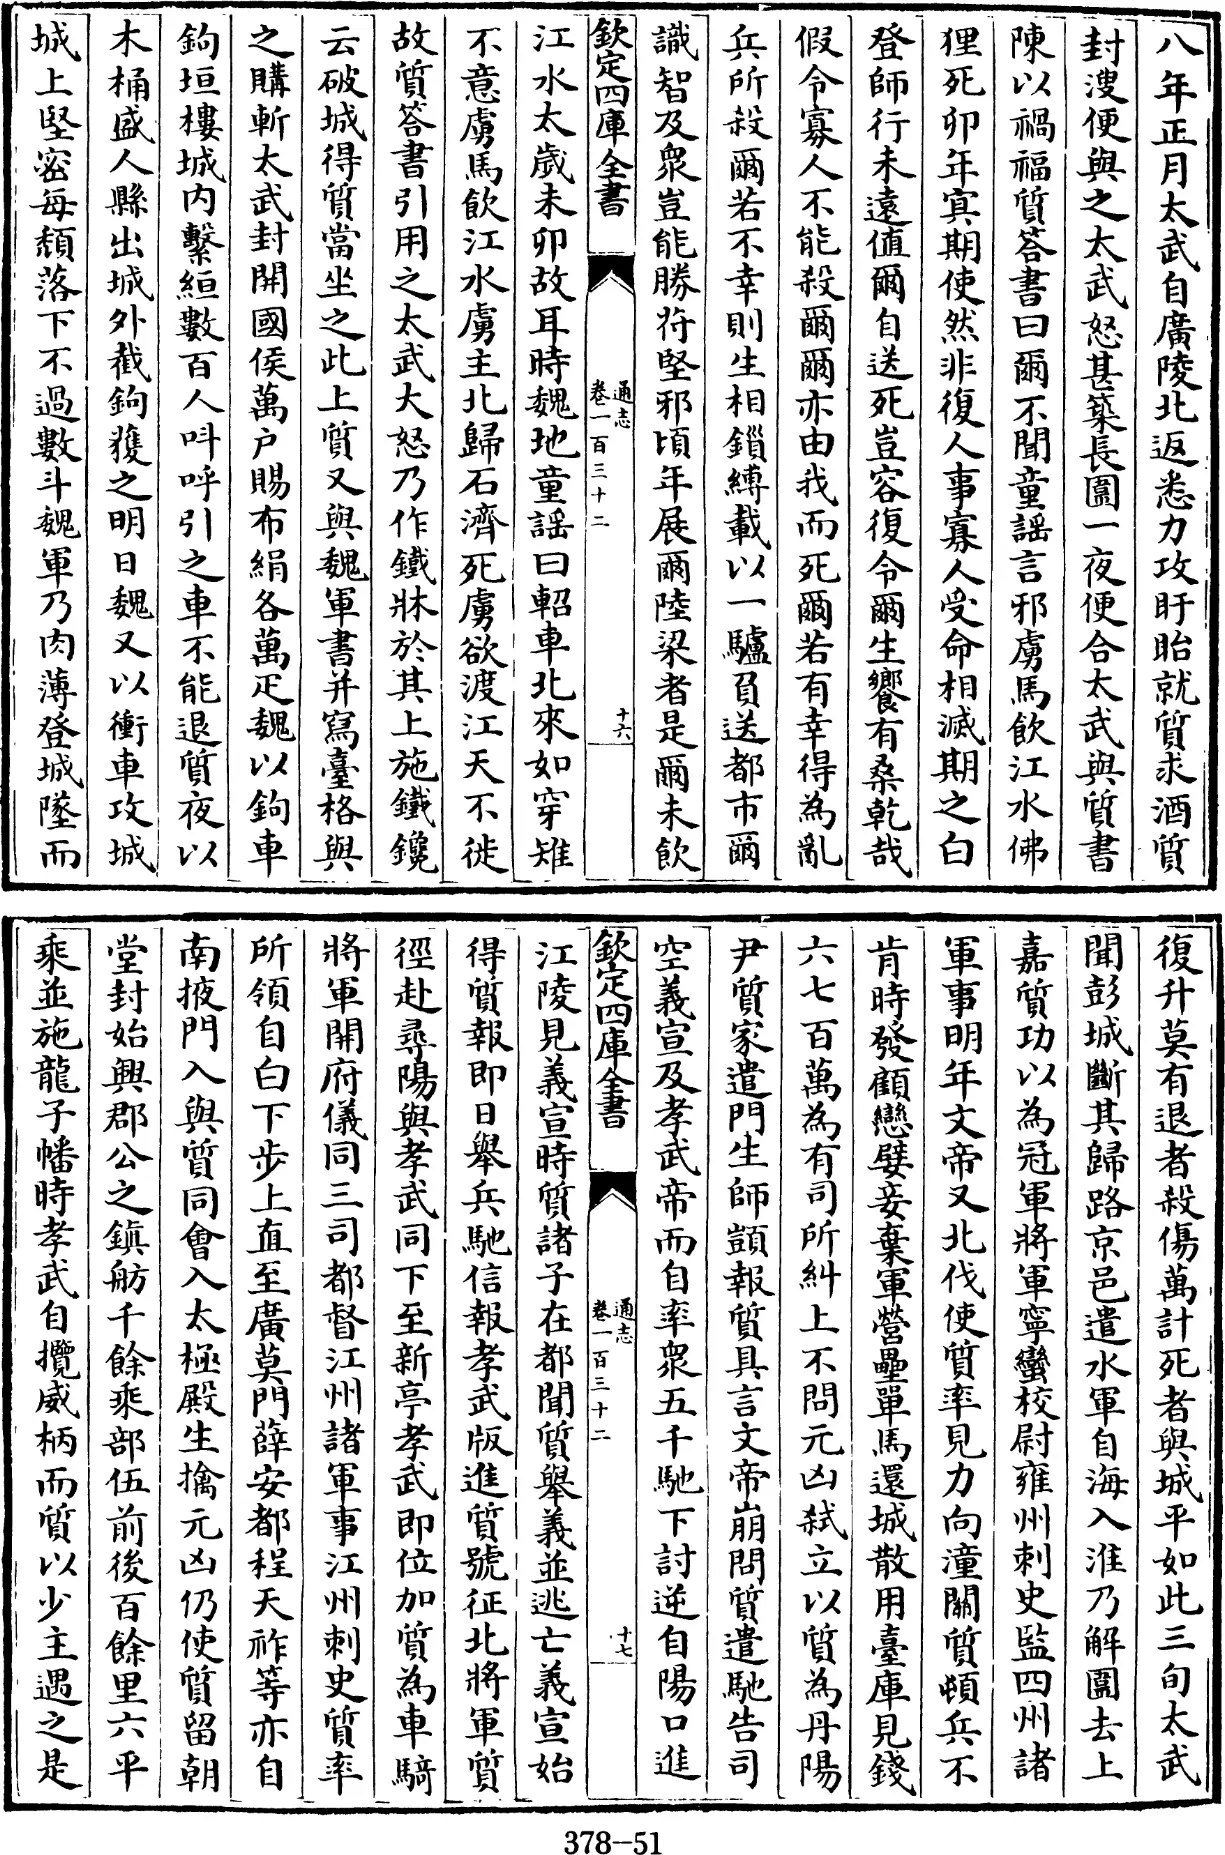 八年正月太武自廣陵北返悉力攻盱眙就質求酒質
封溲便與之太武怒甚築長圍一夜便合太武與質書
陳以禍福質答書曰爾不聞童謡言邪虜馬飲江水佛
狸死卯年㝠期使然非復人事寡人受命相滅期之白
登師行未遠值爾自送死豈容復令爾生饗有桑乾哉
假令寡人不能殺爾爾亦由我而死爾若有幸得為亂
兵所殺爾若不幸則生相鎻縛載以一驢負送都市爾
識智及衆豈能勝苻堅邪頃年展爾陸梁者是爾未飲
欽定四庫全書
通志
卷一百三十二
十六
江水太歲未卯故耳時魏地童謡曰軺車北來如穿雉
不意虜馬飲江水虜主北歸石濟死虜欲渡江天不徙
故質答書引用之太武大怒乃作鐵牀於其上施鐵鑱
云破城得質當坐之此上質又與魏軍書并寫臺格與
之購斬太武封開國侯萬户賜布絹各萬疋魏以鉤車
鉤垣樓城内繫絙數百人叫呼引之車不能退質夜以
木桶盛人縣出城外截鉤獲之明日魏又以衝車攻城
城上堅密每頽落下不過數斗魏軍乃肉薄登城墜而
復升莫有退者殺傷萬計死者與城平如此三旬太武
聞彭城斷其歸路京邑遣水軍自海入淮乃解圍去上
嘉質功以為冠軍將軍寧蠻校尉雍州刺史監四州諸
軍事明年文帝又北伐使質率見力向潼關質頓兵不
肯時發顧戀嬖妾棄軍營壘單馬還城散用臺庫見錢
六七百萬為有司所糾上不問元凶弑立以質為丹陽
尹質家遣門生師顗報質具言文帝崩問質遣馳告司
空義宣及孝武帝而自率衆五千馳下討逆自陽口進
欽定四庫全書
通志
卷一百三十二
十七
江陵見義宣時質諸子在都聞質舉義並逃亡義宣始
得質報即日舉兵馳信報孝武版進質號征北將軍質
徑赴尋陽與孝武同下至新亭孝武即位加質為車騎
將軍開府儀同三司都督江州諸軍事江州刺史質率
所領自白下步上直至廣莫門薛安都程天祚等亦自
南掖門入與質同會入太極殿生擒元凶仍使質留朝
堂封始興郡公之鎮舫千餘乘部伍前後百餘里六平
乘並施龍子幡時孝武自攬威柄而質以少主遇之是
378--51